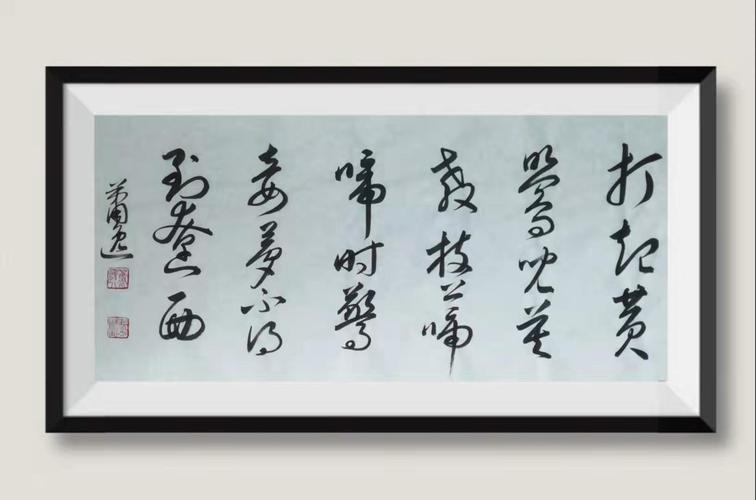 打起黄
鶯兒莫
教枝上啼
啼时驚
妾夢不得
到遼西